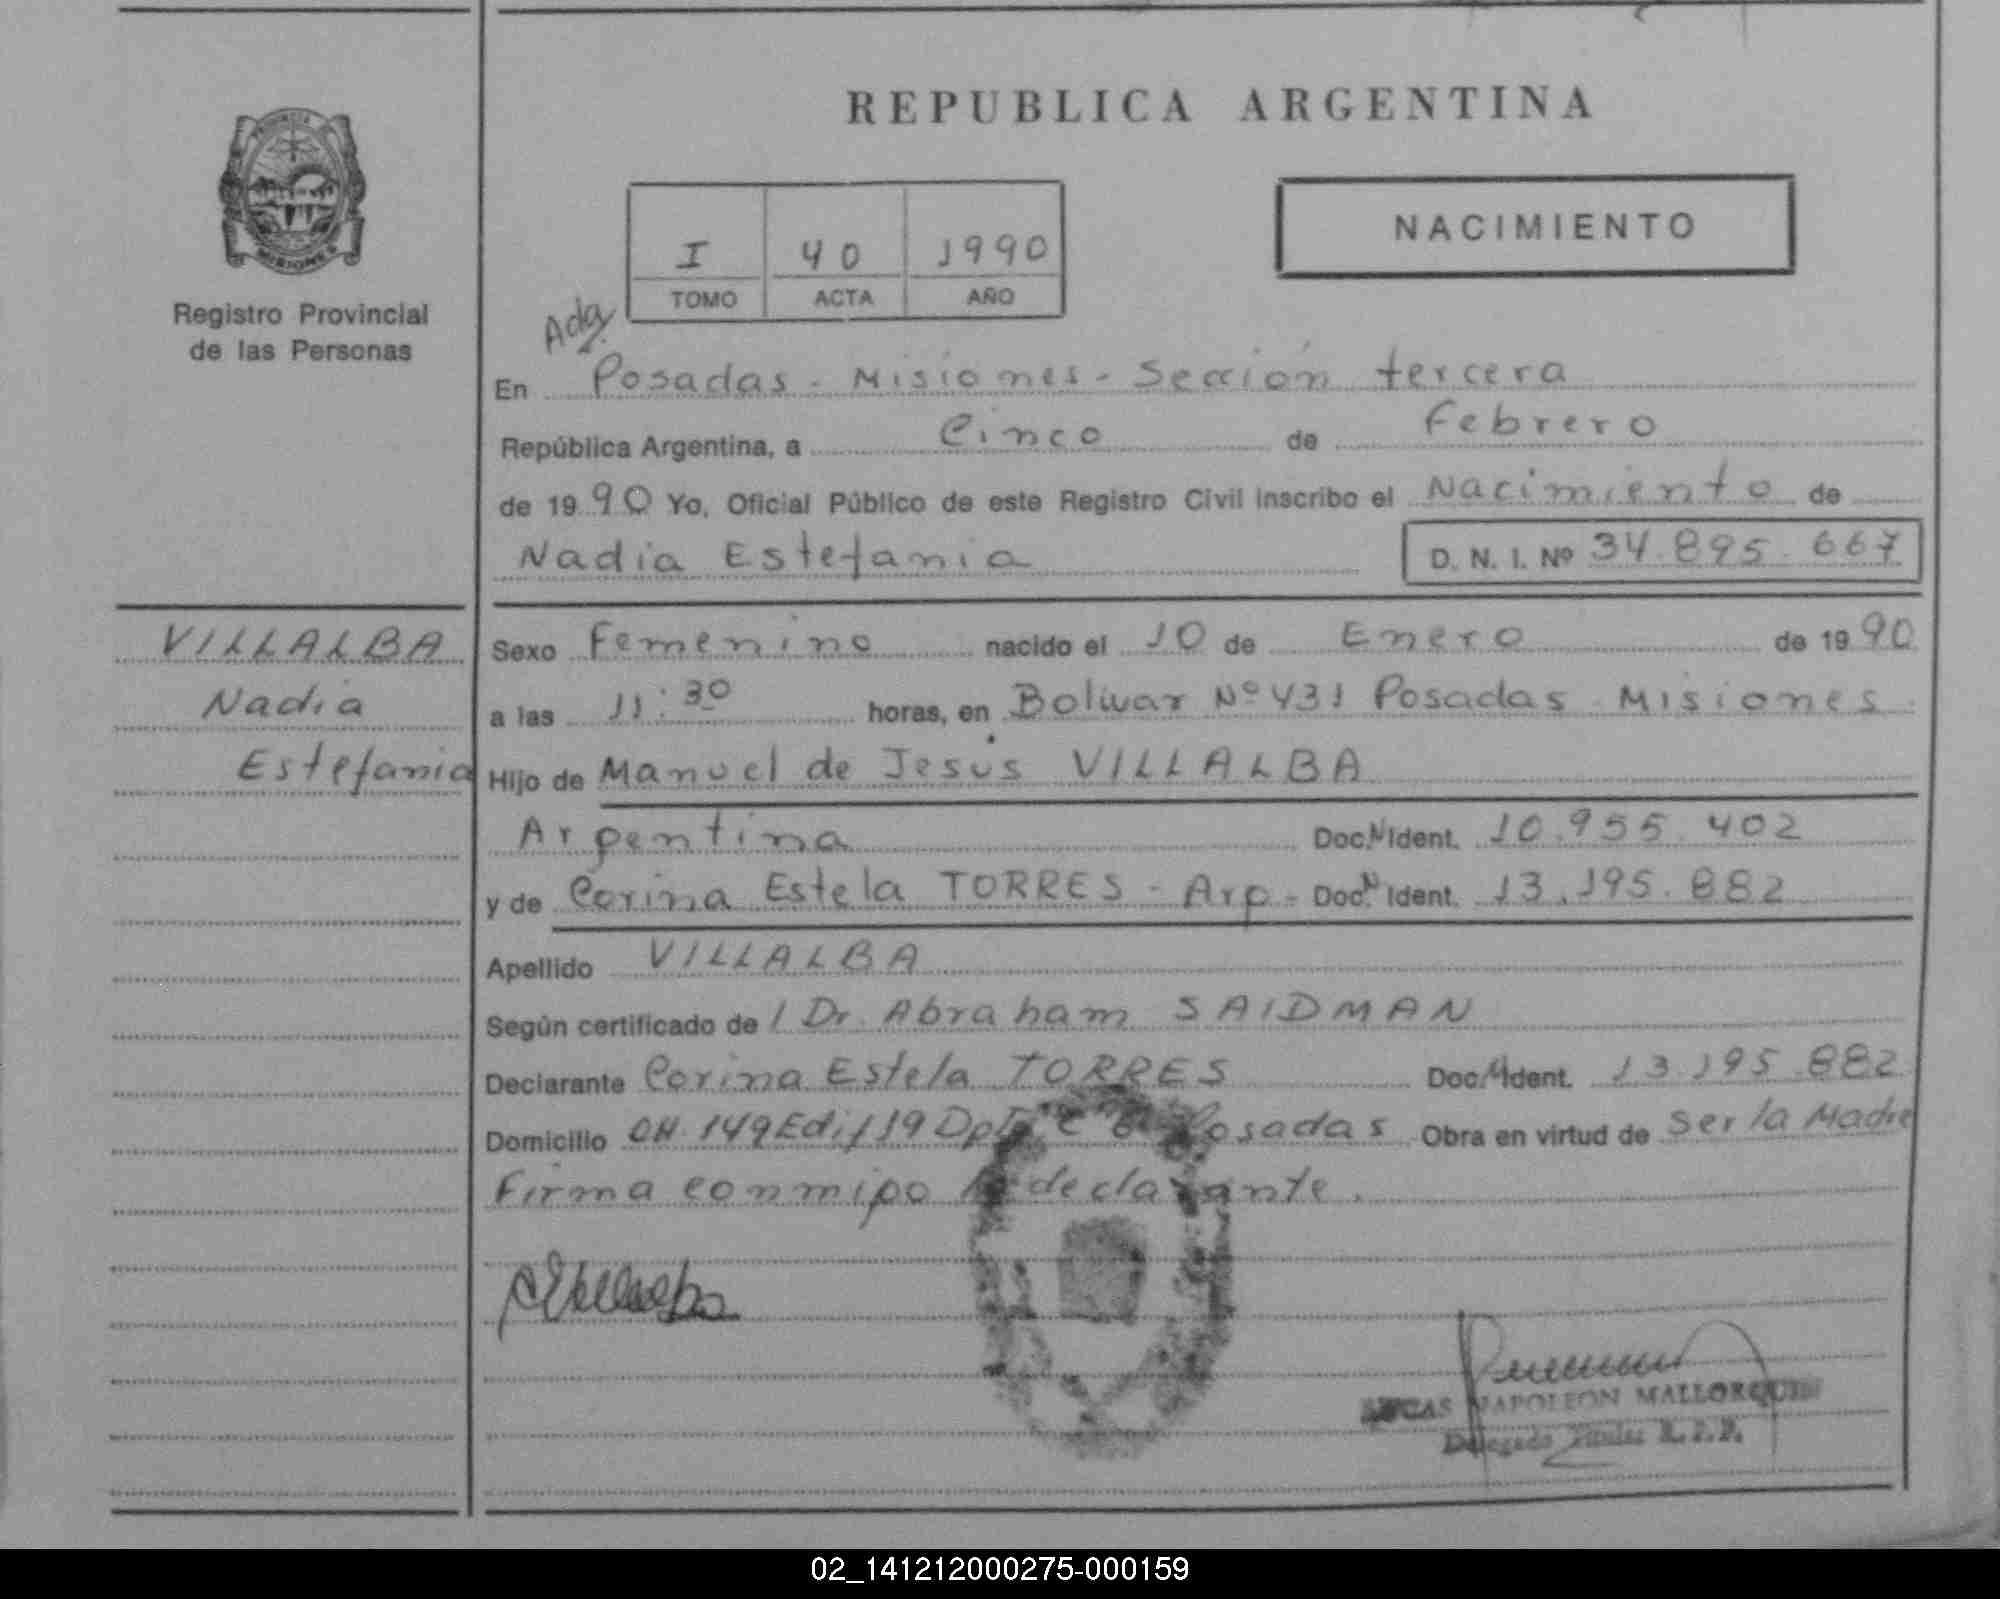 REPUBLICA ARGENTINA
NACIMIENTO
I 40 1990
TOMO ACTA AÑO
MISIONES
Registro Provincial
de las Personas
Ada.
En Posadas - Misiones - Sección tercera
República Argentina, a Cinco de Febrero
de 1990 Yo, Oficial Público de este Registro Civil inscribo el Nacimiento de
Nadia Estefania D. N. I. Nº 34.895.667
VILLALBA
Nadia
Estefania
Sexo Femenino nacido el 10 de Enero de 1990
a las 11:30 horas, en Bolivar Nº 431 Posadas Misiones.
Hijo de Manuel de Jesús VILLALBA
Argentina Doc.N Ident. 10.955.402
y de Corina Estela TORRES - Arg - Doc.N Ident. 13.195.882
Apellido VILLALBA
Según certificado de / Dr. Abraham SAIDMAN
Declarante Corina Estela TORRES Doc.N Ident. 13.195.882
Domicilio CH. 149 Edif 19 Dpto C Posadas Obra en virtud de Ser la Madre
Firma conmigo la declarante.
LUCAS NAPOLEON MALLORQUIN
Delegado Titular R. P. P.
02_141212000275-000159